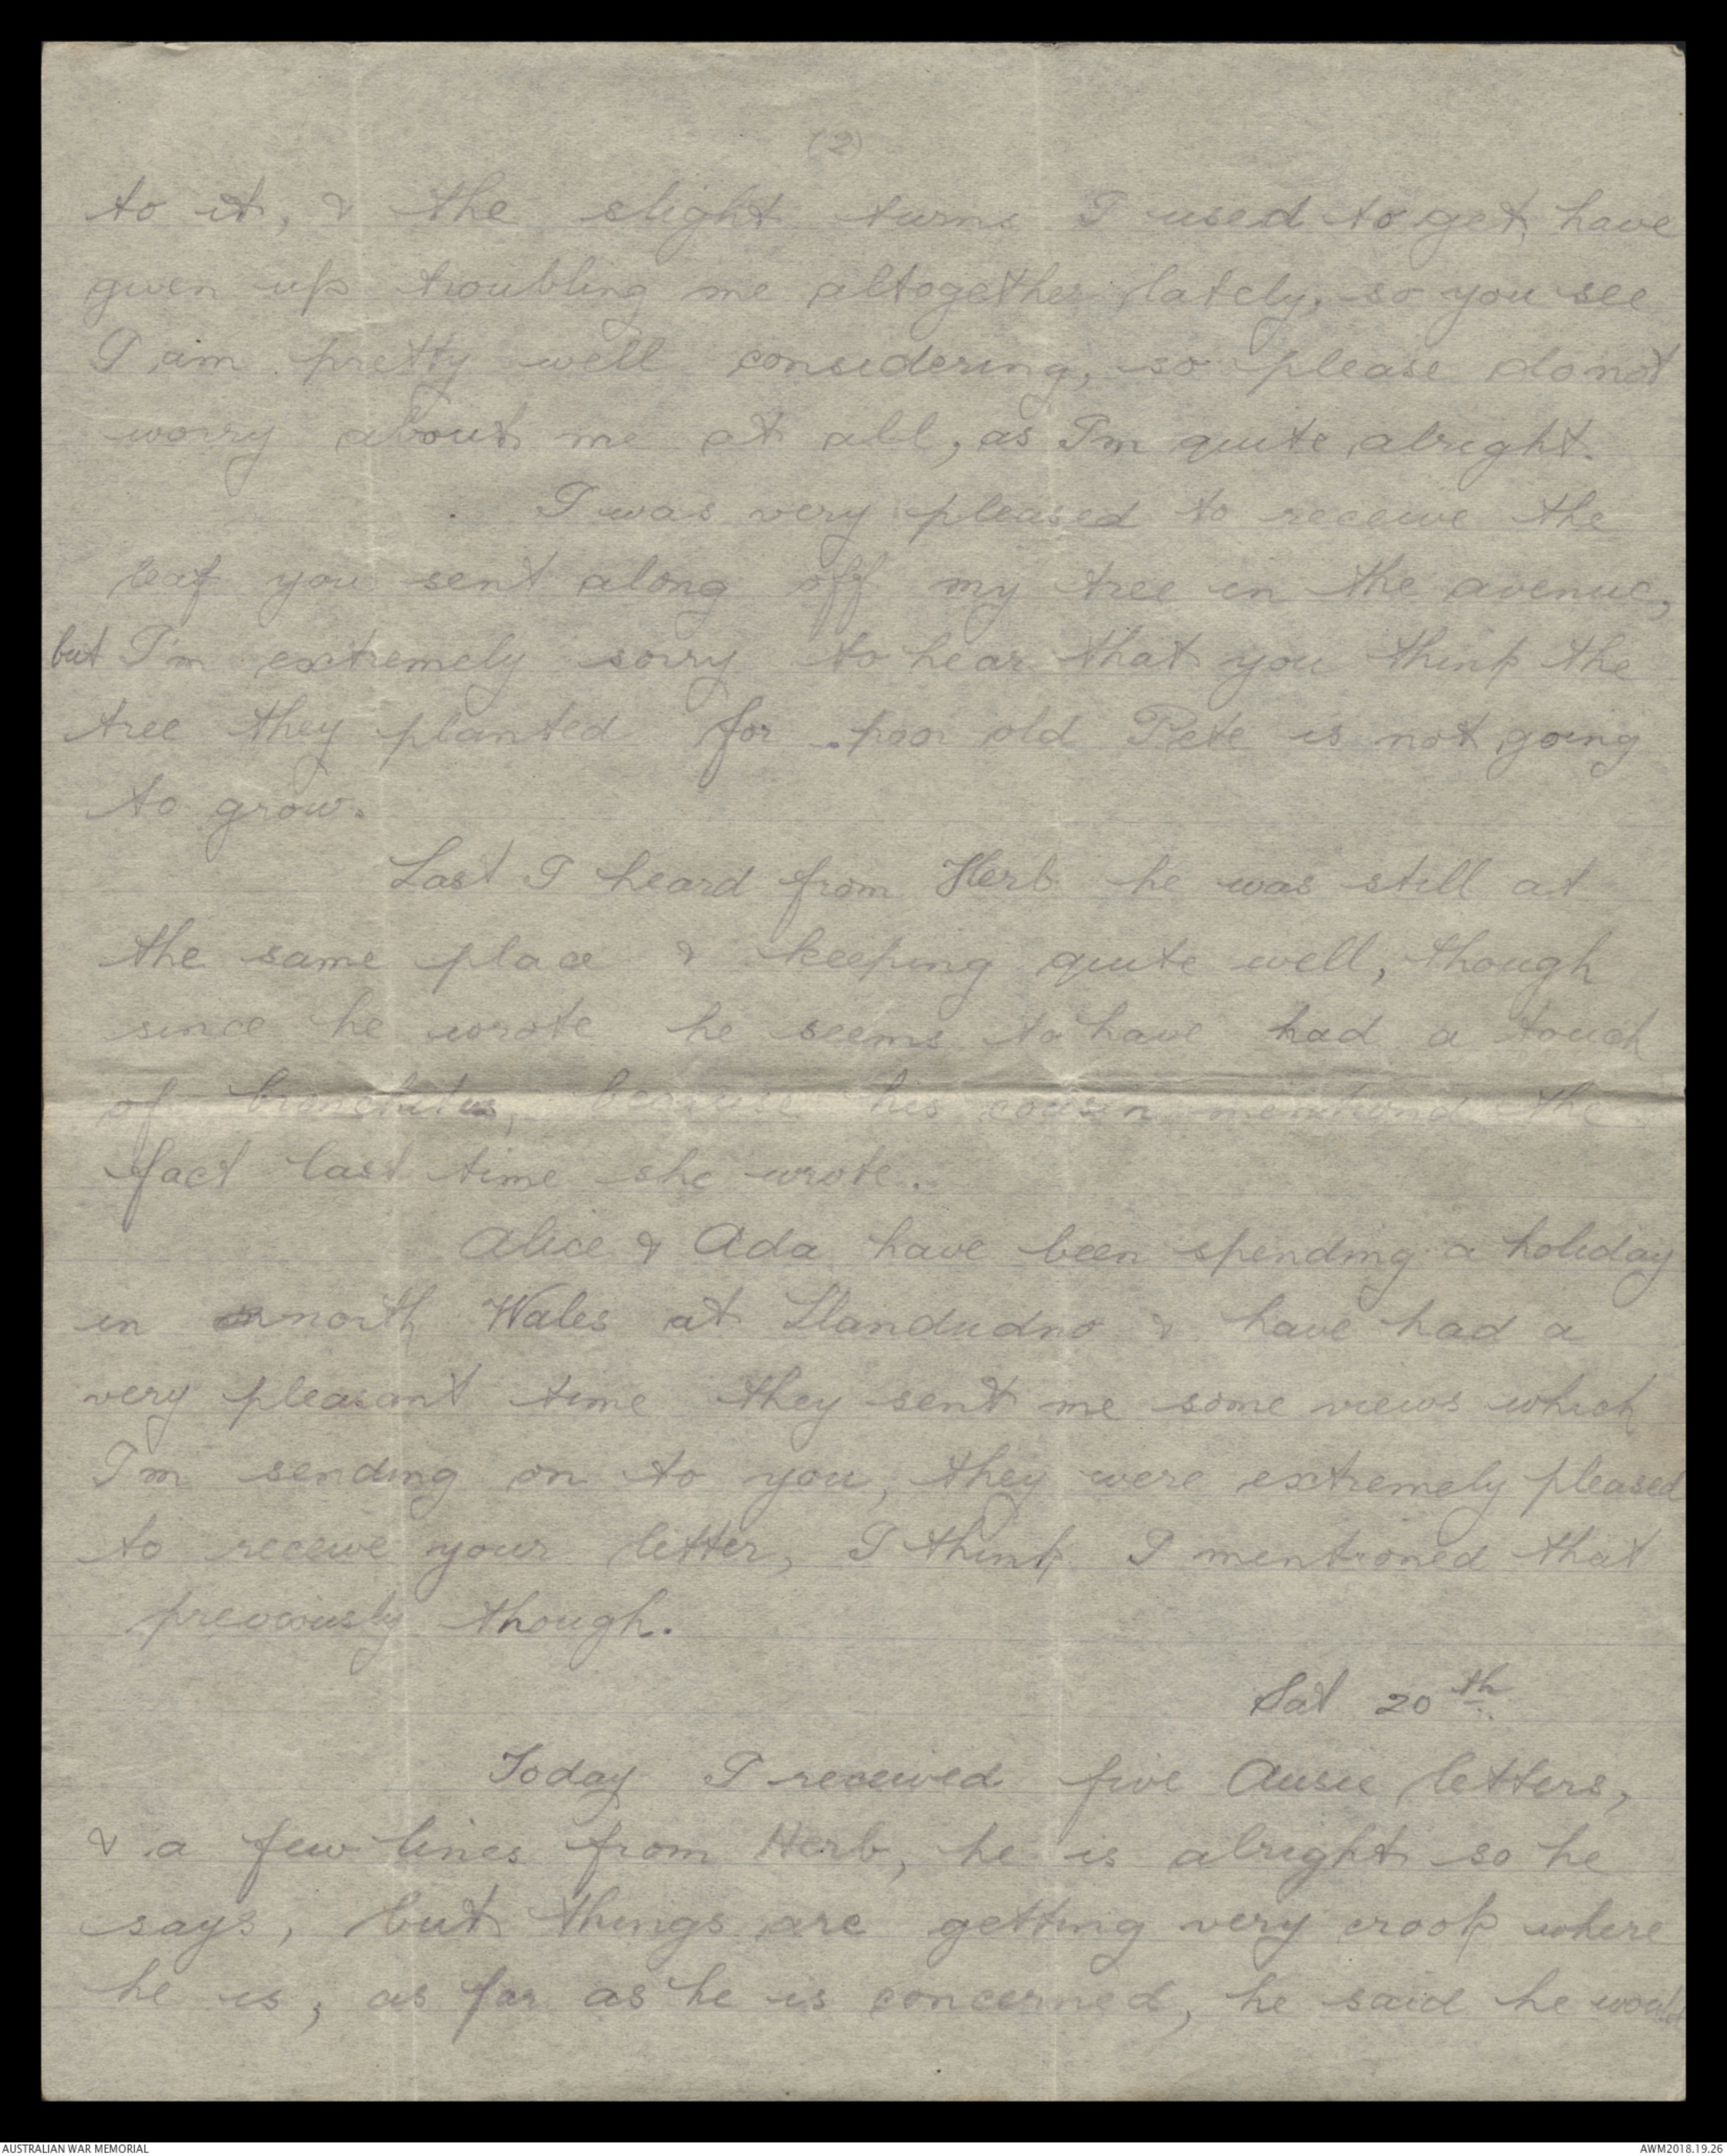 (2)
to it, & the slight turns I used to get have
given up troubling me altogether lately, so you see
I am pretty well considering, so please do not
worry about me at all, as I'm quite alright.
I was very pleased to receive the
leaf you sent along off my tree in the avenue,
but I'm extremely sorry to hear that you think the
tree they planted for poor old Pete is not going
to grow.
Last I heard from Herb he was still at
the same place & keeping quite well, though
since he wrote he seems to have had a touch
of bronchitus, because his cousin mentiond the
fact last time she wrote.
Alice & Ada have been spending a holiday
in north Wales at Llandudno & have had a
very pleasant time they sent me some views which
I'm sending on to you, they were extremely pleased
to receive your letter, I think I mentioned that
previously though.
Sat 20th
Today I received five Ausie letters,
& a few lines from Herb, he is alright so he
says, but things are getting very crook where
he is, as far as he is concerned, he said he would
AUSTRALIAN WAR MEMORIAL
AWM2018.19.26